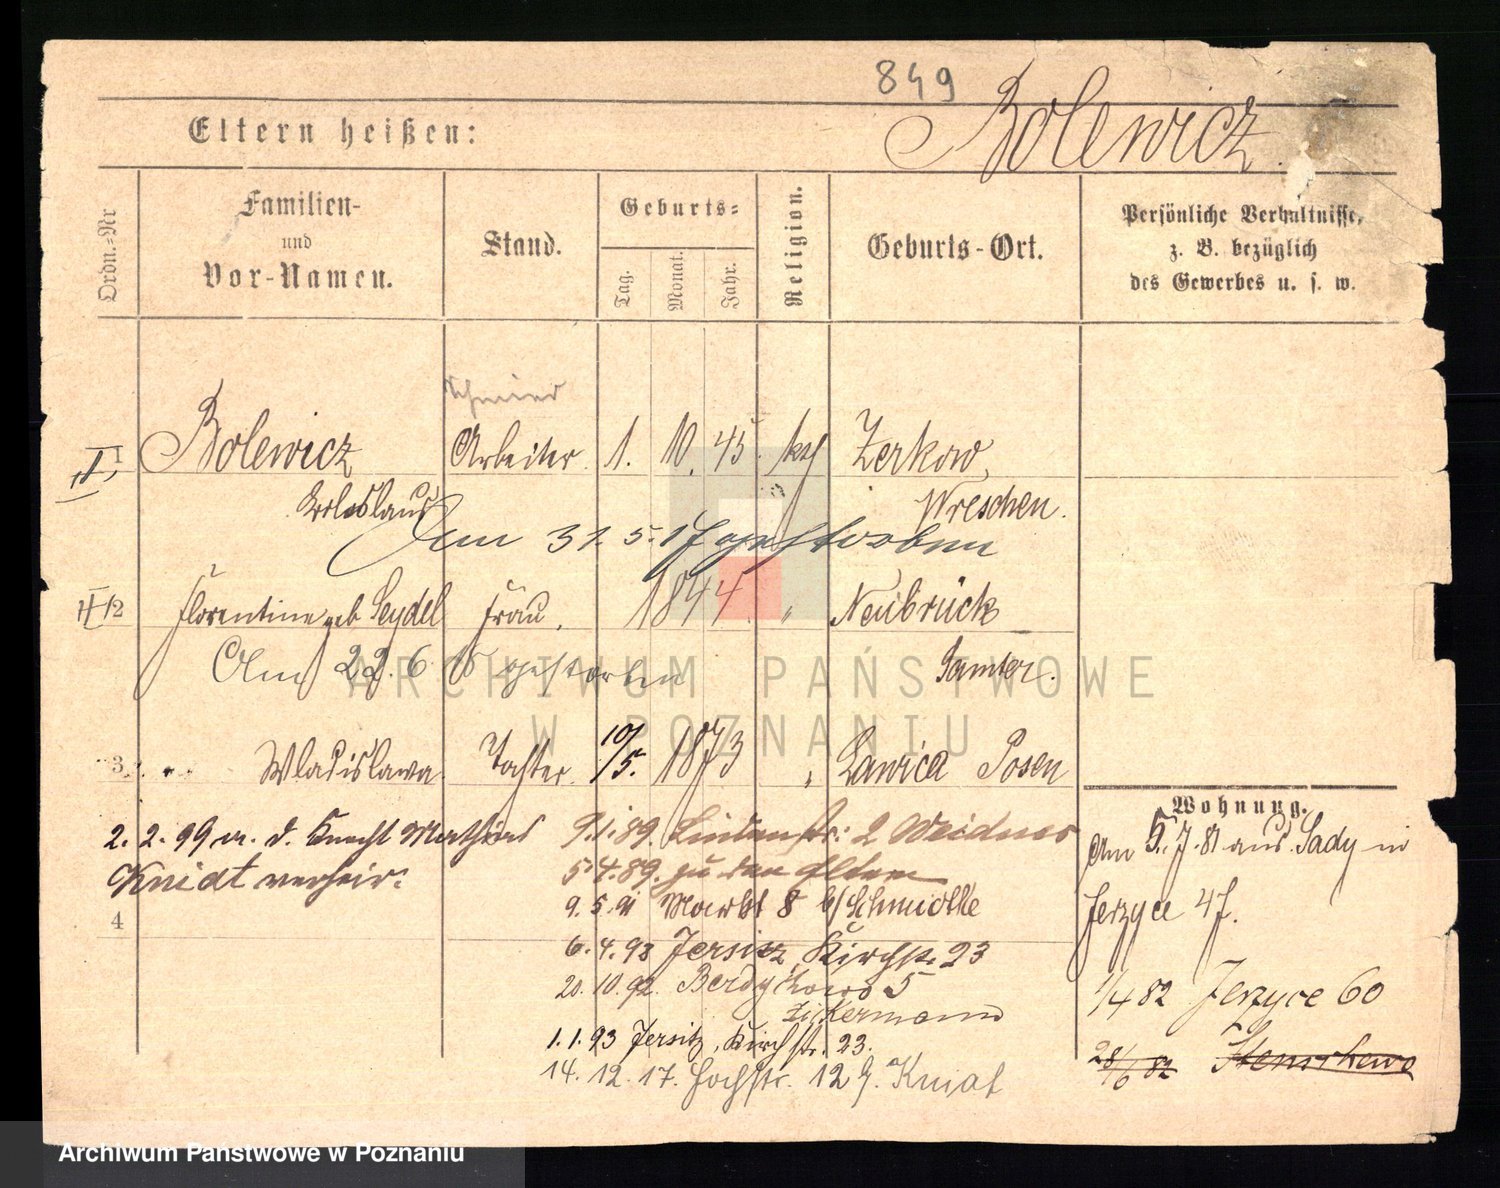 849
Bolewicz.
Eltern heißen:
Ordn.-Nr
Familien-
und
Vor-Namen.
Stand.
Geburts-
Tag.
Monat.
Jahr.
Religion.
Geburts-Ort.
Persönliche Verhältnisse,
z. B. bezüglich
des Gewerbes u. s. w.
1
Bolewicz
Arbeiter
1. 10. 45
kth
Zerkow,
Boleslaus
Wreschen.
Am 31. 5. 17 gestorben
2
Florentine geb Seydel
Frau.
1844
"
Neubrück
Samter.
Am 22. 6. gestorben
ARCHIWUM PAŃSTWOWE
W POZNANIU
3
Wladislawa
Tochter
10/5. 1873
"
Lawica Posen
Wohnung.
2. 2. 99 m. d. Knecht Mathias
Kniat verheir:
4
9.1.89. Lindenstr: 2 Weidner
5.4.89. zu den Eltern
9. 5. 91 Markt 8 b/ Schmidtke
6. 4. 92 Jersitz, Kirchstr. 23
20. 10. 92. 5
Zickermann
1. 1. 93 Jersitz, Kirchstr. 23.
14. 12. 17. Hochstr. 12 b. Kniat
Am 5. 7. 81 aus Sady in
Jerzyce 47.
1/4 82 Jerzyce 60
28/6 82
Archiwum Państwowe w Poznaniu